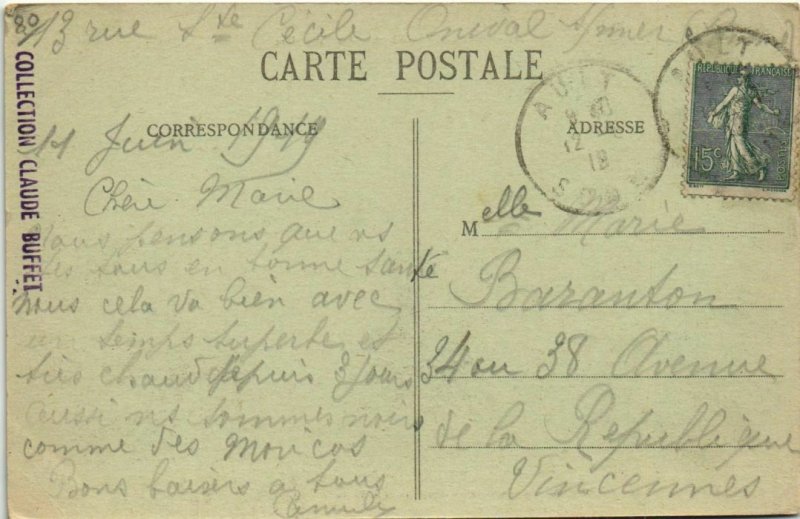 13 rue Ste Cécile Onival s/mer
CARTE POSTALE
CORRESPONDANCE
ADRESSE
COLLECTION CLAUDE BUFFET
REPUBLIQUE FRANÇAISE
15c
POSTES
AULT
AULT
12
11 Juin 1919
Chère Marie
Nous pensons que vs
êtes tous en bonne santé
nous cela va bien avec
un temps superbe et
très chaud depuis 8 jours
aussi ns sommes noirs
comme des Moricos
Bons baisers a tous
Melle Marie
Baranton
34 ou 38 Avenue
de la Republique
Vincennes